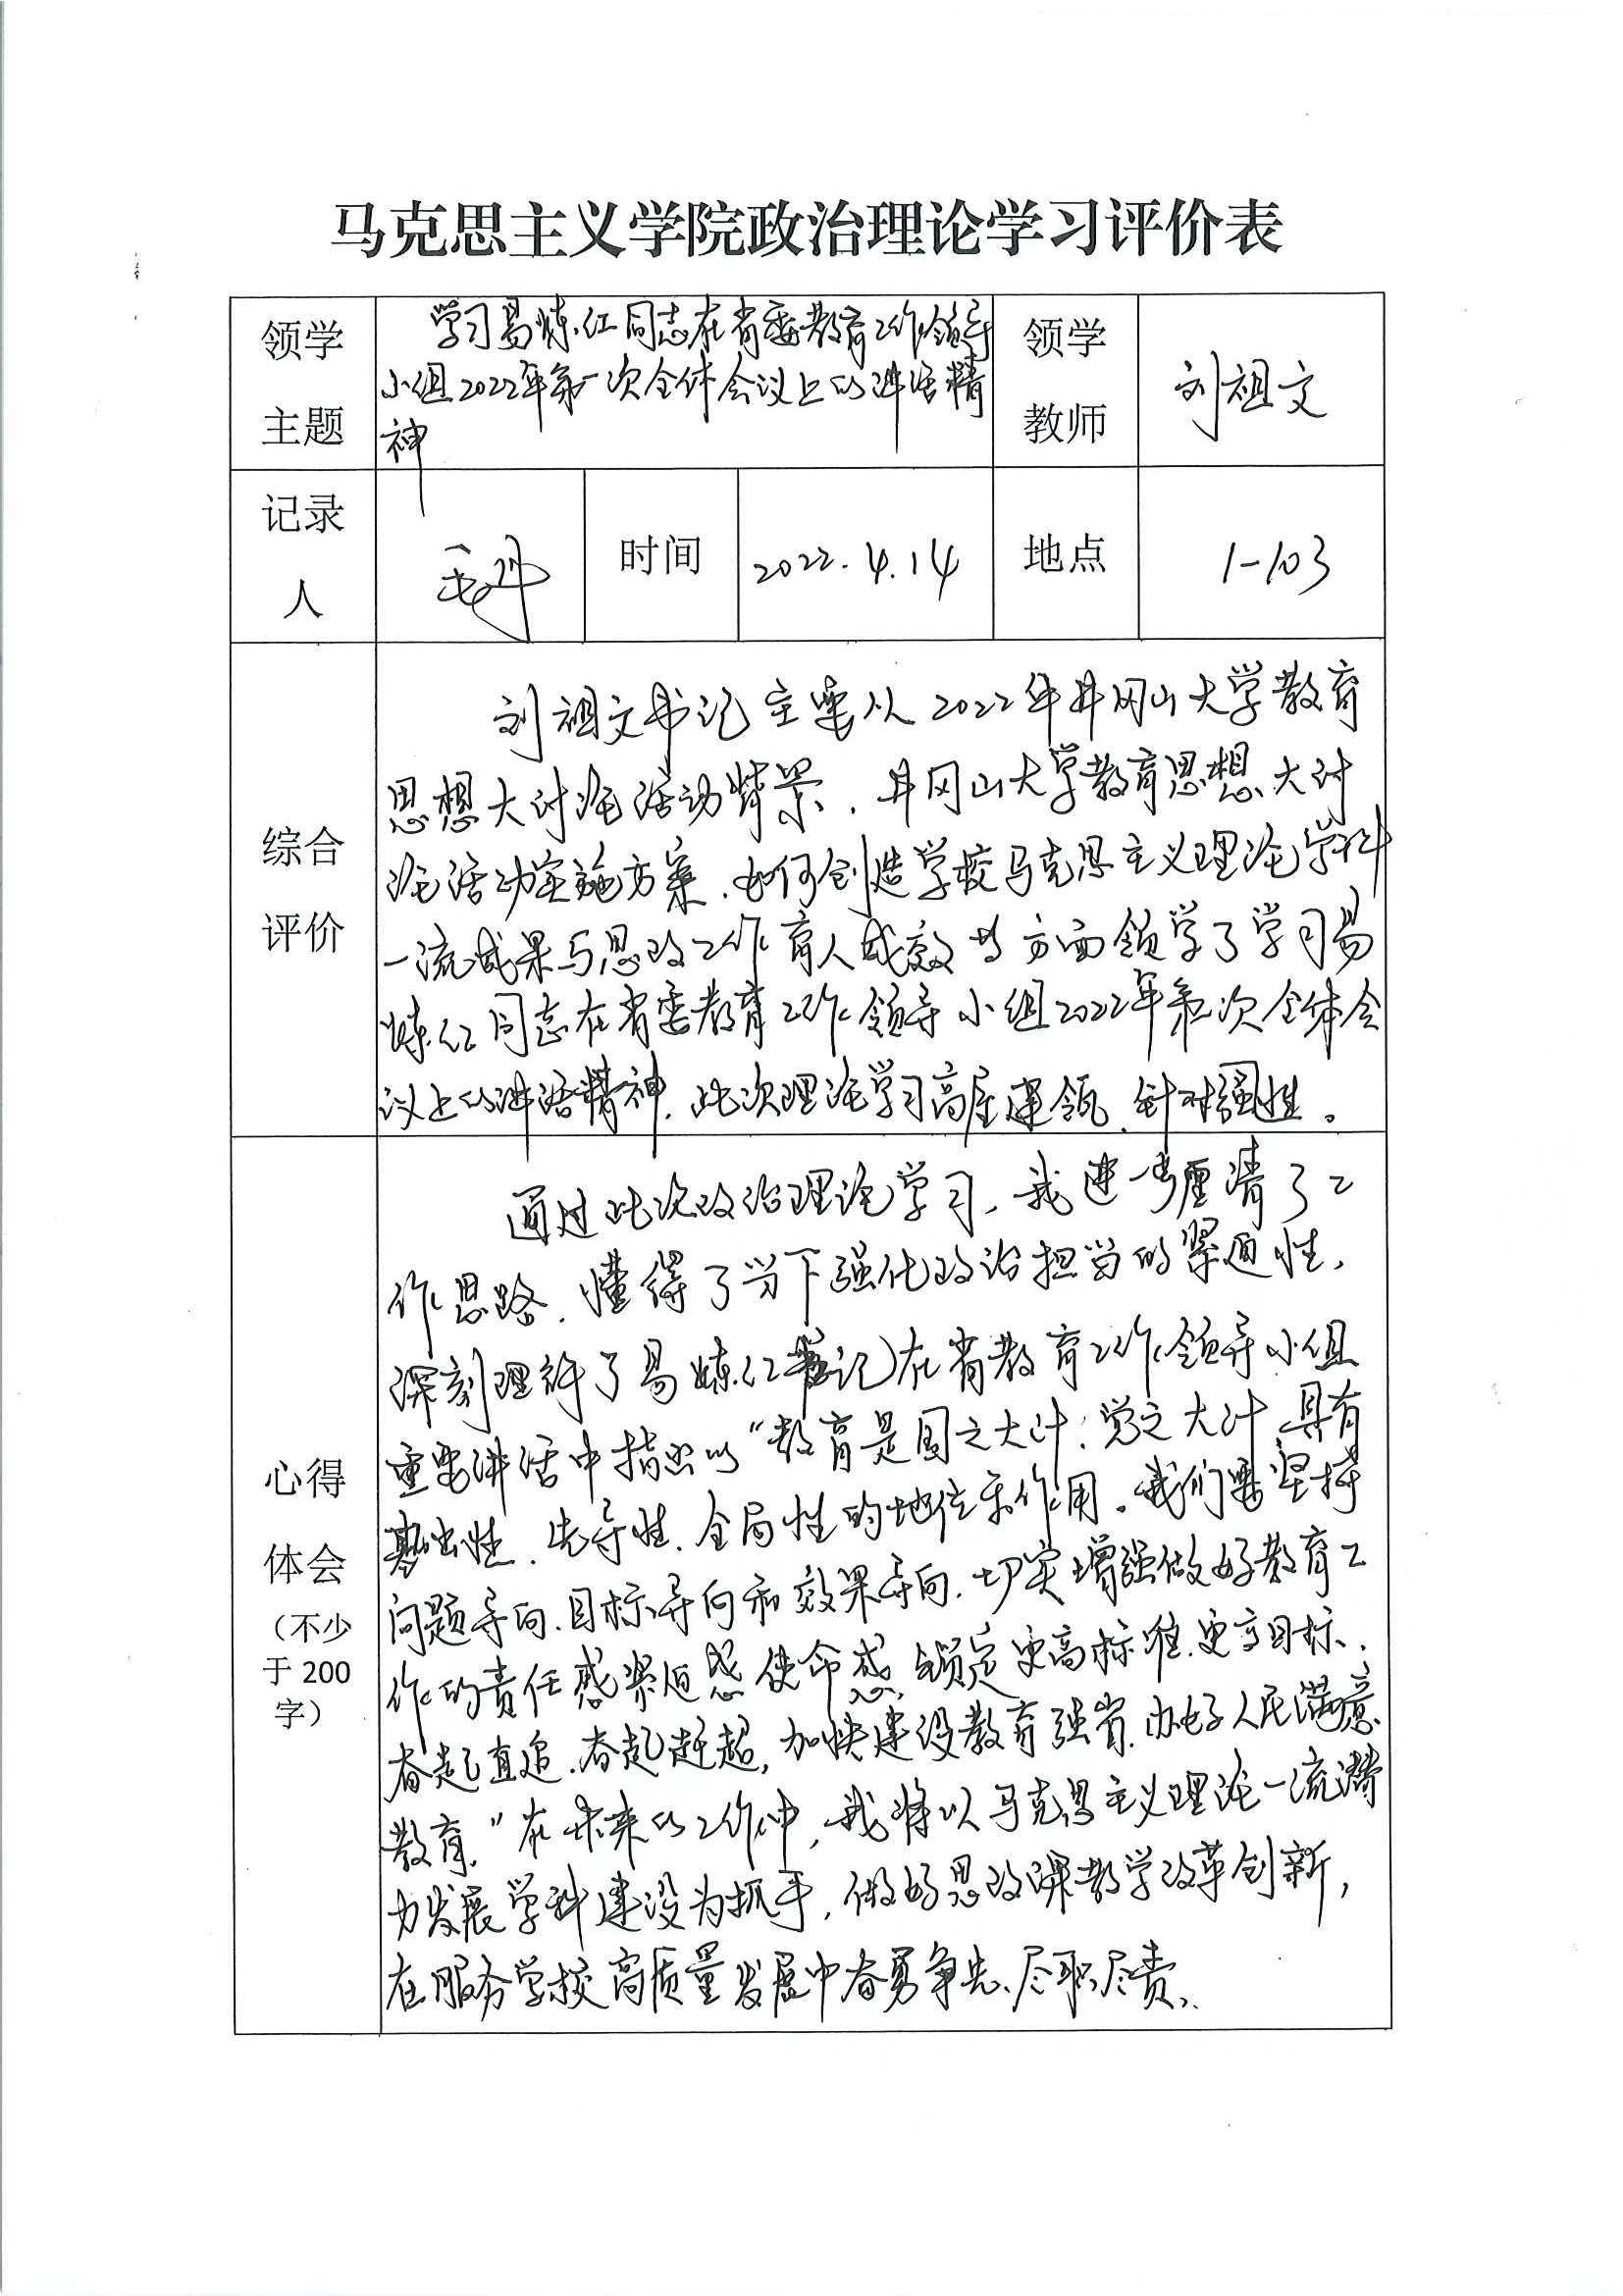 马克思主义学院政治理论学习评价表
领学主题
学习易炼红同志在省委教育工作领导
小组2022年第一次全体会议上的讲话精
神
领学教师
刘祖文
记录人
毛丹
时间
2022.4.14
地点
1-103
综合评价
刘祖文书记主要从2022年井冈山大学教育
思想大讨论活动背景、井冈山大学教育思想大讨
论活动实施方案、如何创造学校马克思主义理论学科
一流成果与思政工作育人成效等方面领学了学习易
炼红同志在省委教育工作领导小组2022年第一次全体会
议上的讲话精神,此次理论学习高屋建瓴、针对强性。
心得体会
(不少于200字)
通过此次政治理论学习,我进一步厘清了工
作思路、懂得了当下强化政治担当的紧迫性,
深刻理解了易炼红书记在省教育工作领导小组
重要讲话中指出的“教育是国之大计、党之大计,具有
基础性、先导性、全局性的地位和作用。我们要坚持
问题导向、目标导向和效果导向,切实增强做好教育工
作的责任感紧迫感使命感,锁定更高标准、更高目标、
奋起直追、奋起赶超,加快建设教育强省,办好人民满意
教育。”在未来的工作中,我将以马克思主义理论一流潜
力发展学科建设为抓手,做好思政课教学改革创新,
在服务学校高质量发展中奋勇争先、尽职尽责。